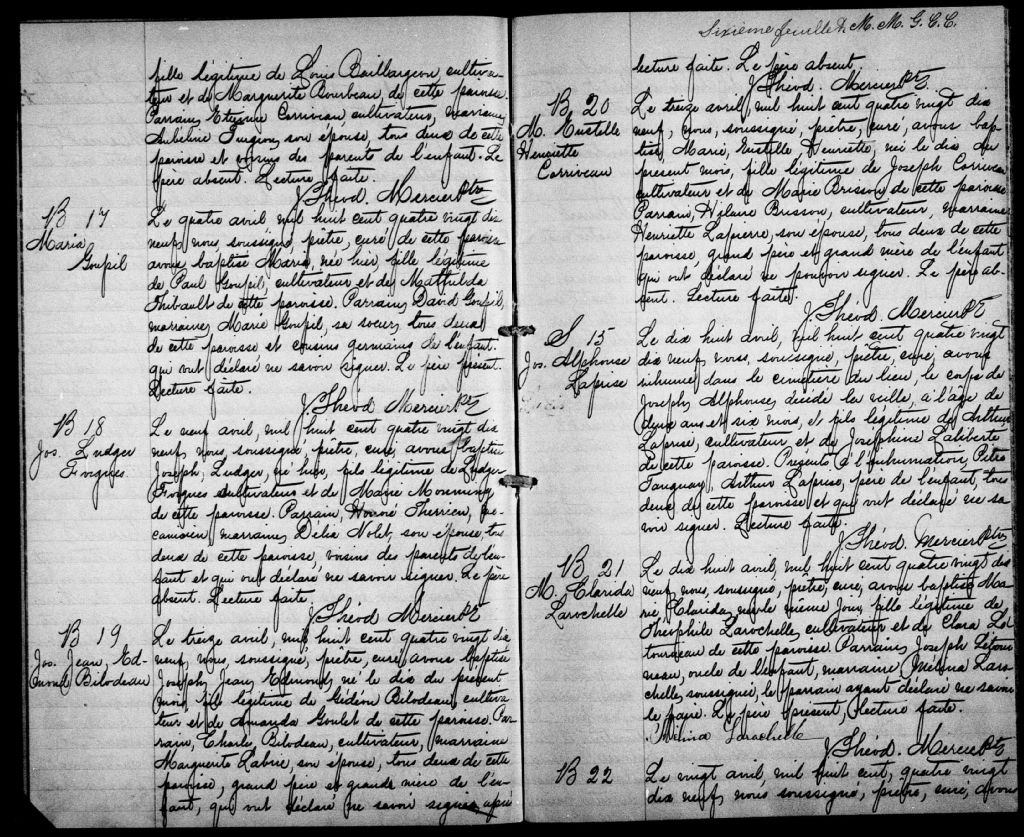 fille légitime de Louis Baillargeon, cultiva-
teur et de Marguerite Bourbeau, de cette paroisse.
Parrain, Etienne Corriveau, cultivateur, marraine,
Turgeon, son épouse, tous deux de cette
paroisse et voisins des parents de l'enfant. Le
père absent. Lecture faite.
J. Théod. Mercier Ptre
B 17
Maria
Goupil
Le quatre avril mil huit cent quatre vingt dix
neuf, nous, soussigné, prêtre, curé de cette paroisse
avons baptisé Maria, née hier, fille légitime
de Paul Goupil, cultivateur et de Mathilda
Thibault de cette paroisse. Parrain, David Goupil,
marraine, Marie Goupil, sa soeur, tous deux
de cette paroisse et cousins germains de l'enfant.
qui ont déclaré ne savoir signer. Le père présent.
Lecture faite.
J. Théod. Mercier Ptre
B 18
Jos. Ludger
Forgues.
Le neuf avril, mil huit cent quatre vingt dix
neuf, nous, soussigné, prêtre, curé, avons baptisé
Joseph, Ludger, né hier, fils légitime de Ludger
Forgues cultivateur et de Marie
de cette paroisse. Parrain, Honoré Therrien, mé-
canicien, marraine, Délia Nolet, son épouse, tous
deux de cette paroisse, voisins des parents de l'en-
fant et qui ont déclaré ne savoir signer. Le père
absent. Lecture faite.
J. Théod. Mercier Ptre
B 19
Jos. Jean, Ed-
mond Bilodeau
Le treize avril, mil huit cent quatre vingt dix
neuf, nous, soussigné, prêtre, curé avons baptisé
Joseph, Jean, Edmond, né le dix du présent
mois, fils légitime de Gédéon Bilodeau, cultiva-
teur et de Amanda Goulet de cette paroisse. Par-
rain, Charles Bilodeau, cultivateur, marraine
Marguerite Labrie, son épouse, tous deux de cette
paroisse, grand père et grande mère de l'en-
fant, qui ont déclaré ne savoir signer, après
Sixième feuillet. M. M. G. C. C.
lecture faite. Le père absent.
J. Théod. Mercier Ptre
B 20
M. Eustelle
Henriette
Corriveau
Le treize avril, mil huit cent quatre vingt dix
neuf, nous, soussigné, prêtre, curé, avons bap-
tisé, Marie, Eustelle Henriette, née le dix du
présent mois, fille légitime de Joseph Corriveau
cultivateur et de Marie Brisson de cette paroisse
Parrain, Hilaire Brisson, cultivateur, marraine
Henriette Lapierre, son épouse, tous deux de cette
paroisse, grand père et grand mère de l'enfant
qui ont déclaré ne pouvoir signer. Le père ab-
sent. Lecture faite.
J. Théod. Mercier Ptre
S 15
Jos. Alphonse
Laprise
Le dix huit avril, mil huit cent quatre vingt
dix neuf, nous, soussigné, prêtre, curé, avons
inhumé dans le cimetière du lieu, le corps de
Joseph, Alphonse, décédé la veille, à l'âge de
deux ans et six mois, et fils légitime de Arthur
Laprise, cultivateur et de Josephine Laliberté
de cette paroisse. Présents à l'inhumation, Pitre
Tanguay, Arthur Laprise, père de l'enfant, tous
deux de cette paroisse et qui ont déclaré ne sa-
voir signer. Lecture faite.
J. Théod. Mercier Ptre
B 21
M. Clarida
Larochelle
Le dix huit avril, mil huit cent quatre vingt dix
neuf, nous, soussigné, prêtre, curé, avons baptisé Ma-
rie, Clarida, née le même jour, fille légitime de
Théophile Larochelle, cultivateur et de Clara Lé-
tourneau de cette paroisse. Parrain, Joseph Létour-
neau, oncle de l'enfant, marraine Mélina Laro-
chelle, soussignée, le parrain ayant déclaré ne savoir
le faire. Le père présent, lecture faite.
Mélina Larochelle
J. Théod. Mercier Ptre
B 22
Le vingt avril, mil huit cent, quatre vingt
dix neuf, nous soussigné, prêtre, curé, avons